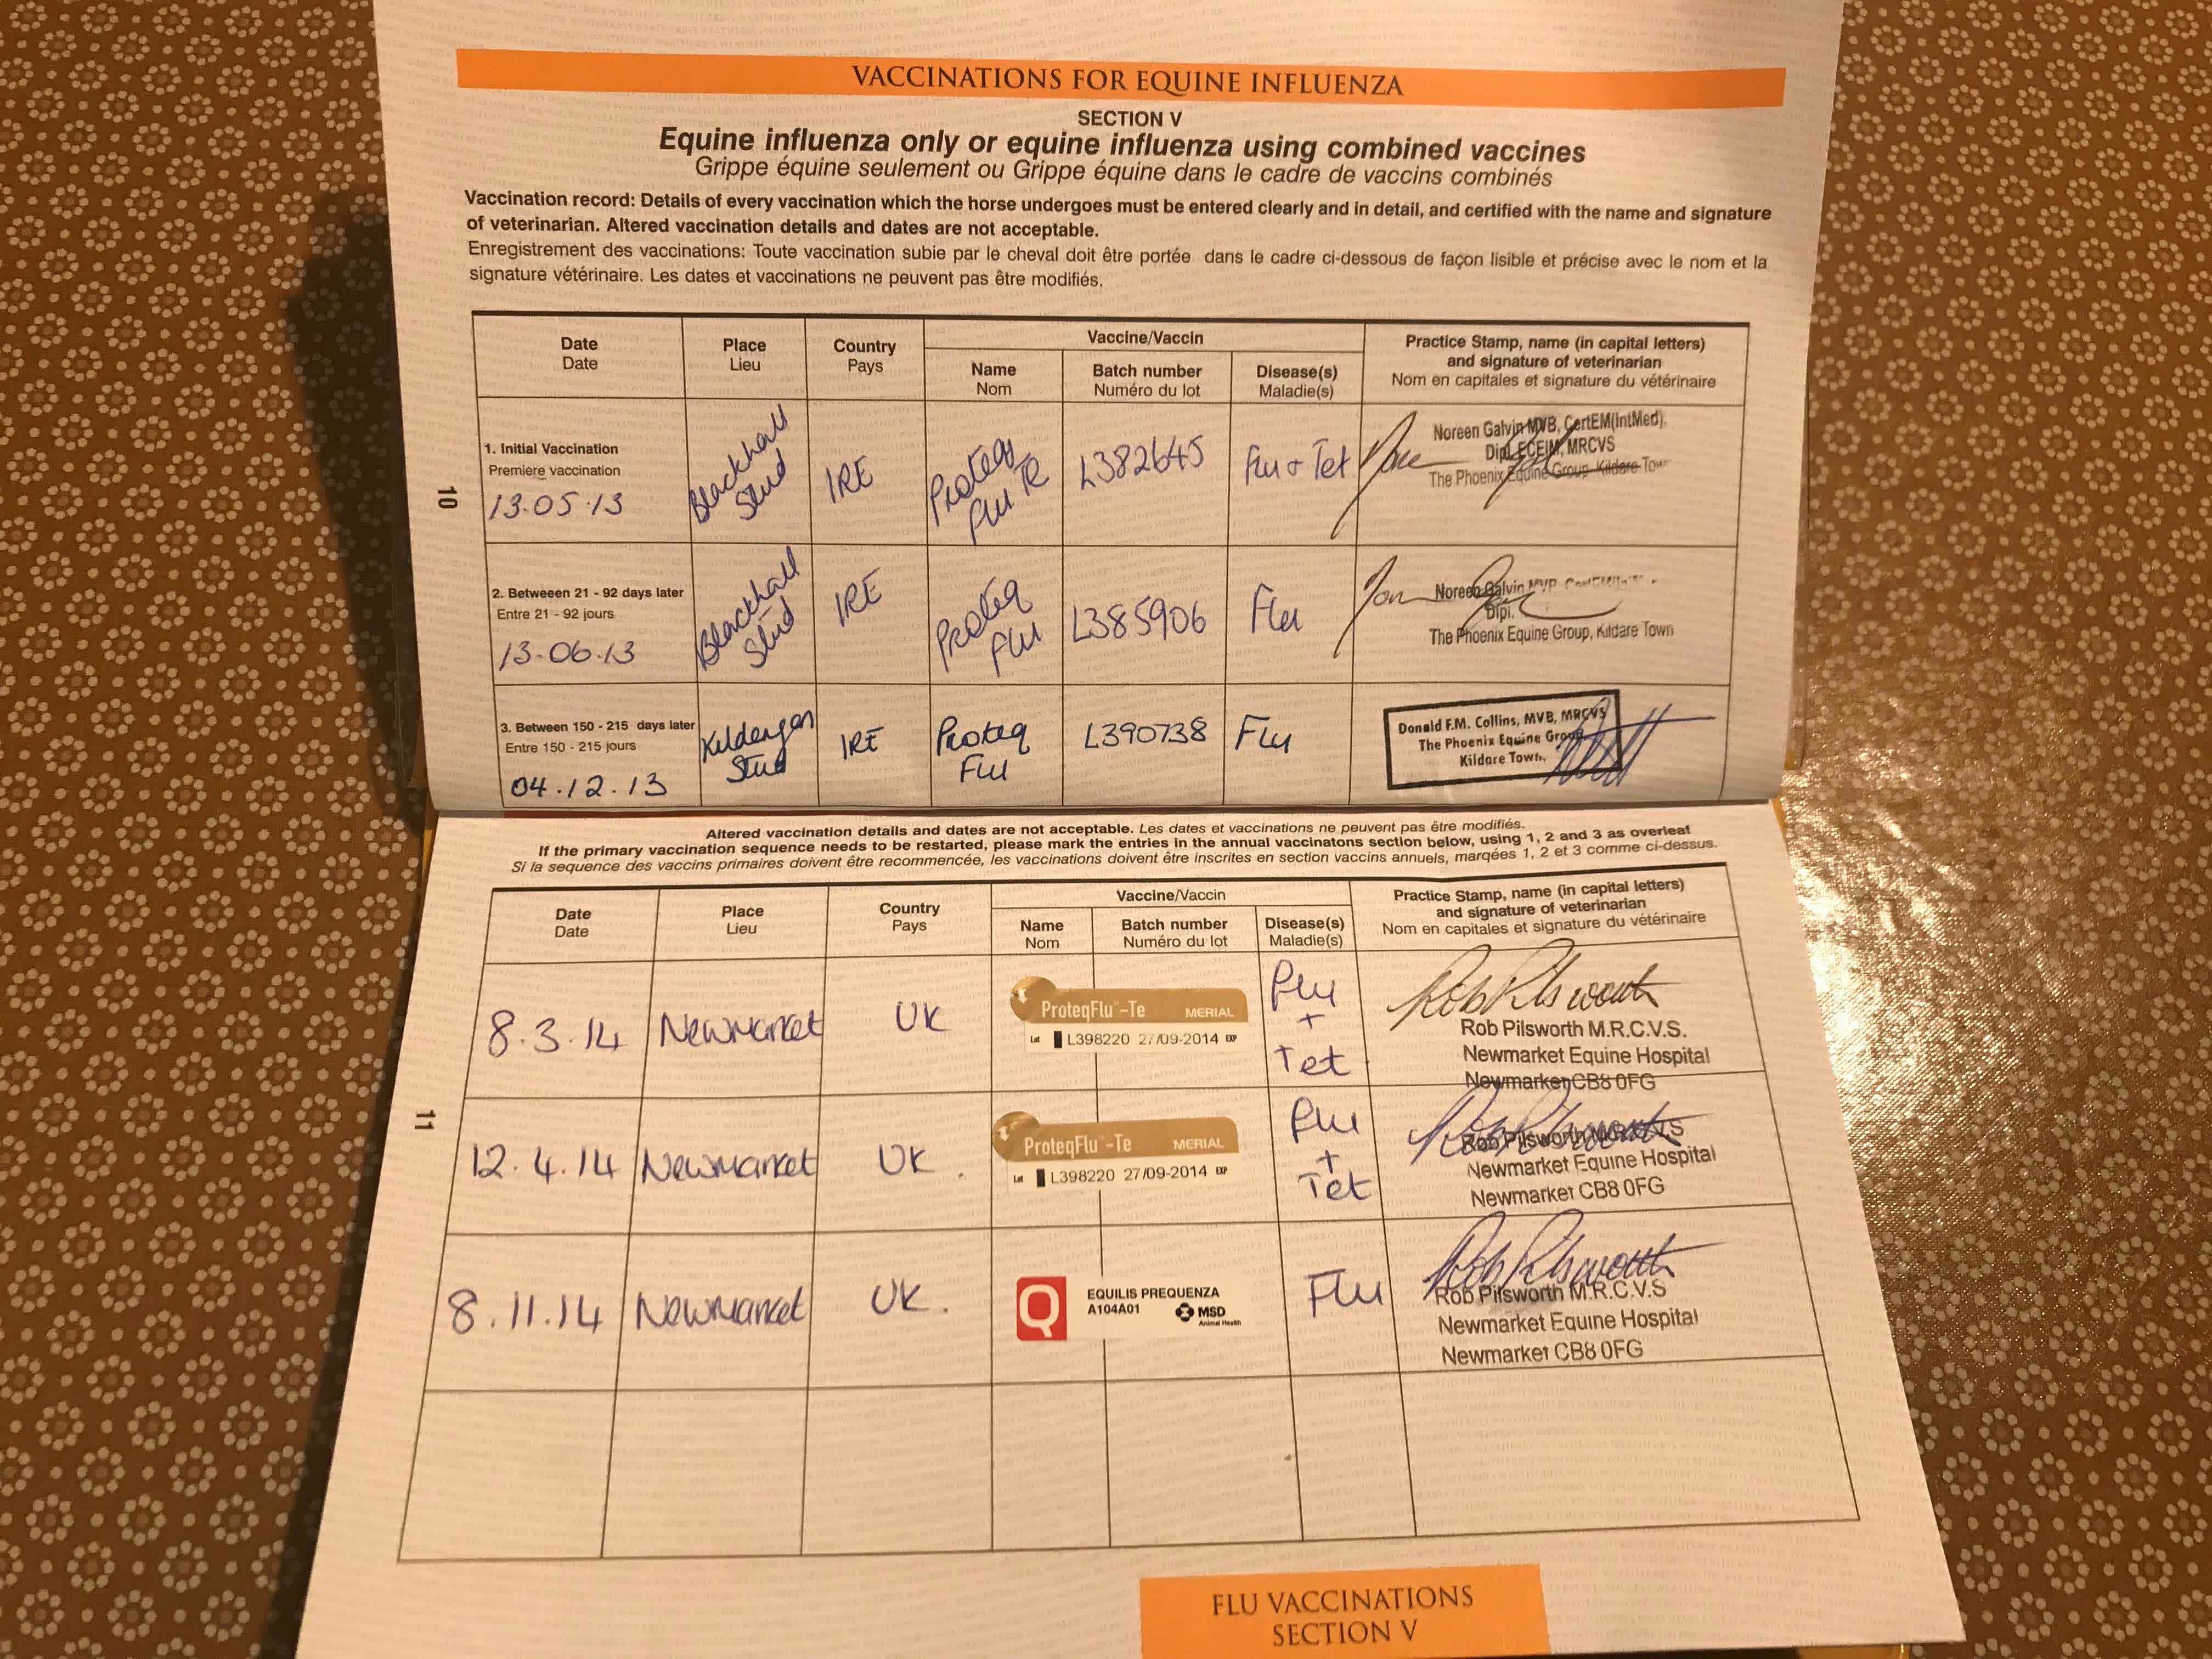 VACCINATIONS FOR EQUINE INFLUENZA
SECTION V
Equine influenza only or equine influenza using combined vaccines
Grippe équine seulement ou Grippe équine dans le cadre de vaccins combinés
Vaccination record: Details of every vaccination which the horse undergoes must be entered clearly and in detail, and certified with the name and signature
of veterinarian. Altered vaccination details and dates are not acceptable.
Enregistrement des vaccinations: Toute vaccination subie par le cheval doit être portée dans le cadre ci-dessous de façon lisible et précise avec le nom et la
signature vétérinaire. Les dates et vaccinations ne peuvent pas être modifiés.
Date
Date
Place
Lieu
Country
Pays
Vaccine/Vaccin
Name
Nom
Batch number
Numéro du lot
Disease(s)
Maladie(s)
Practice Stamp, name (in capital letters)
and signature of veterinarian
Nom en capitales et signature du vétérinaire
1. Initial Vaccination
Premiere vaccination
13.05.13
Blackhall
Stud
IRE
Proteq
Flu Te
L382645
Flu + Tet
Noreen Galvin MVB, CertEM(IntMed),
Dipl. ECEIM, MRCVS
The Phoenix Equine Group, Kildare Town
10
2. Betweeen 21 - 92 days later
Entre 21 - 92 jours
13.06.13
Blackhall
Stud
IRE
Proteq
Flu
L385906
Flu
Noreen Galvin
Dipl.
The Phoenix Equine Group, Kildare Town
3. Between 150 - 215 days later
Entre 150 - 215 jours
04.12.13
Kildangan
Stud
IRE
Proteq
Flu
L390738
Flu
Donald F.M. Collins, MVB, MRCVS
The Phoenix Equine Group
Kildare Town.
Altered vaccination details and dates are not acceptable. Les dates et vaccinations ne peuvent pas être modifiés.
If the primary vaccination sequence needs to be restarted, please mark the entries in the annual vaccinatons section below, using 1, 2 and 3 as overleaf
Si la sequence des vaccins primaires doivent être recommencée, les vaccinations doivent être inscrites en section vaccins annuels, marqées 1, 2 et 3 comme ci-dessus.
Date
Date
Place
Lieu
Country
Pays
Vaccine/Vaccin
Name
Nom
Batch number
Numéro du lot
Disease(s)
Maladie(s)
Practice Stamp, name (in capital letters)
and signature of veterinarian
Nom en capitales et signature du vétérinaire
8.3.14
Newmarket
UK
ProteqFlu™-Te MERIAL
Lot L398220 27/09-2014 EXP
Flu
+
Tet
Rob Pilsworth
Rob Pilsworth M.R.C.V.S.
Newmarket Equine Hospital
Newmarket CB8 0FG
11
12.4.14
Newmarket
UK.
ProteqFlu™-Te MERIAL
Lot L398220 27/09-2014 EXP
Flu
+
Tet
Rob Pilsworth
Rob Pilsworth M.R.C.V.S
Newmarket Equine Hospital
Newmarket CB8 0FG
8.11.14
Newmarket
UK.
Q
EQUILIS PREQUENZA
A104A01
MSD
Animal Health
Flu
Rob Pilsworth
Rob Pilsworth M.R.C.V.S
Newmarket Equine Hospital
Newmarket CB8 0FG
FLU VACCINATIONS
SECTION V